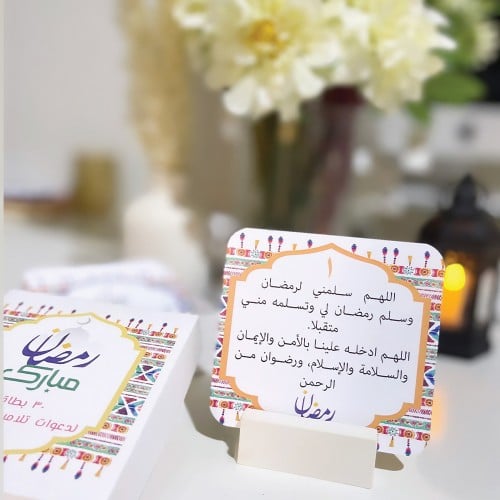 ١
اللهم سلمني لرمضان
وسلم رمضان لي وتسلمه مني
متقبلا.
اللهم ادخله علينا بالأمن والإيمان
والسلامة والإسلام، ورضوان من
الرحمن
رمضان
رمضان
مبارك
٣٠ بطاقة
لدعوات